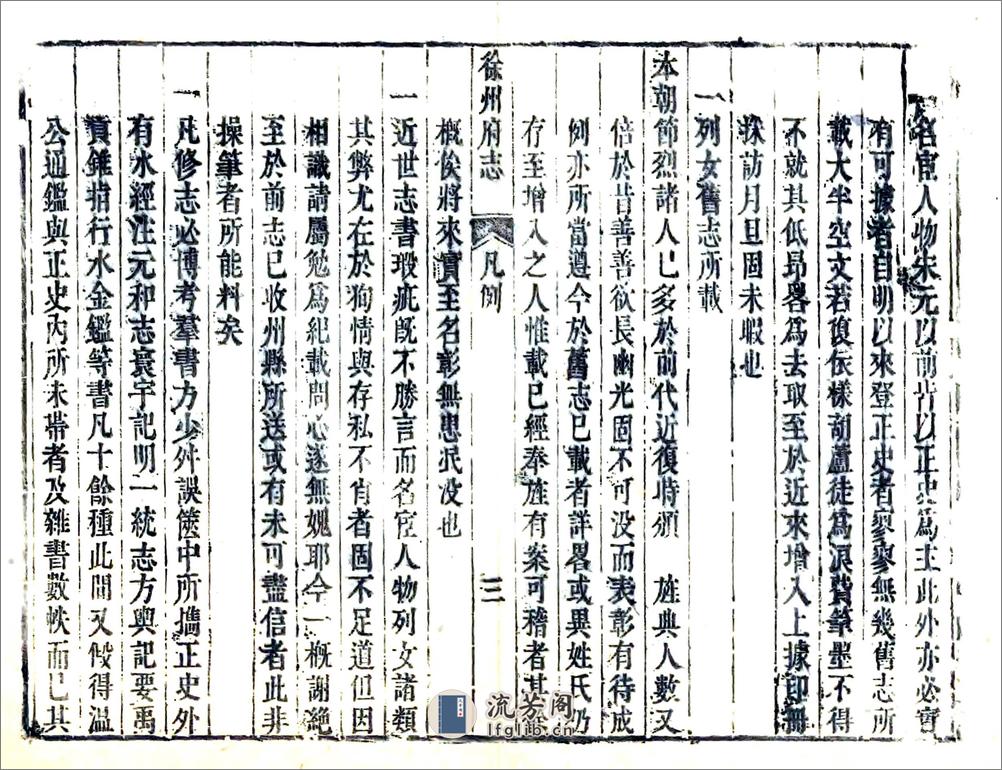 一名宦人物宋元以前皆以正史爲主此外亦必實
有可據者自明以來登正史者寥寥無幾舊志所
載大半空文若復依樣葫蘆徒爲浪費筆墨不得
不就其低昂畧爲去取至於近來增入上據印冊
採訪月旦固未暇也
一列女舊志所載
本朝節烈諸人已多於前代近復特頒 旌典人數又
倍於昔善善欲長幽光固不可没而表彰有待成
例亦所當遵今於舊志已載者詳畧或異姓氏仍
存至增入之人惟載已經奉旌有案可稽者其
徐州府志 凡例 三
概俟將來實至名彰無患泯没也
一近世志書瑕疵旣不勝言而名宦人物列女諸類
其弊尤在於狥情與存私不肖者固不足道但因
相識請屬勉爲紀載問心遂無媿耶今一概謝絶
至於前志已收州縣所送或有未可盡信者此非
操筆者所能料矣
一凡修志必博考羣書方少舛誤篋中所攜正史外
有水經注元和志寰宇記明一統志方輿記要禹
貢錐指行水金鑑等書凡十餘種此間又假得温
公通鑑與正史內所未帶者及雜書數帙而已其
流芳阁
lfglib.cn